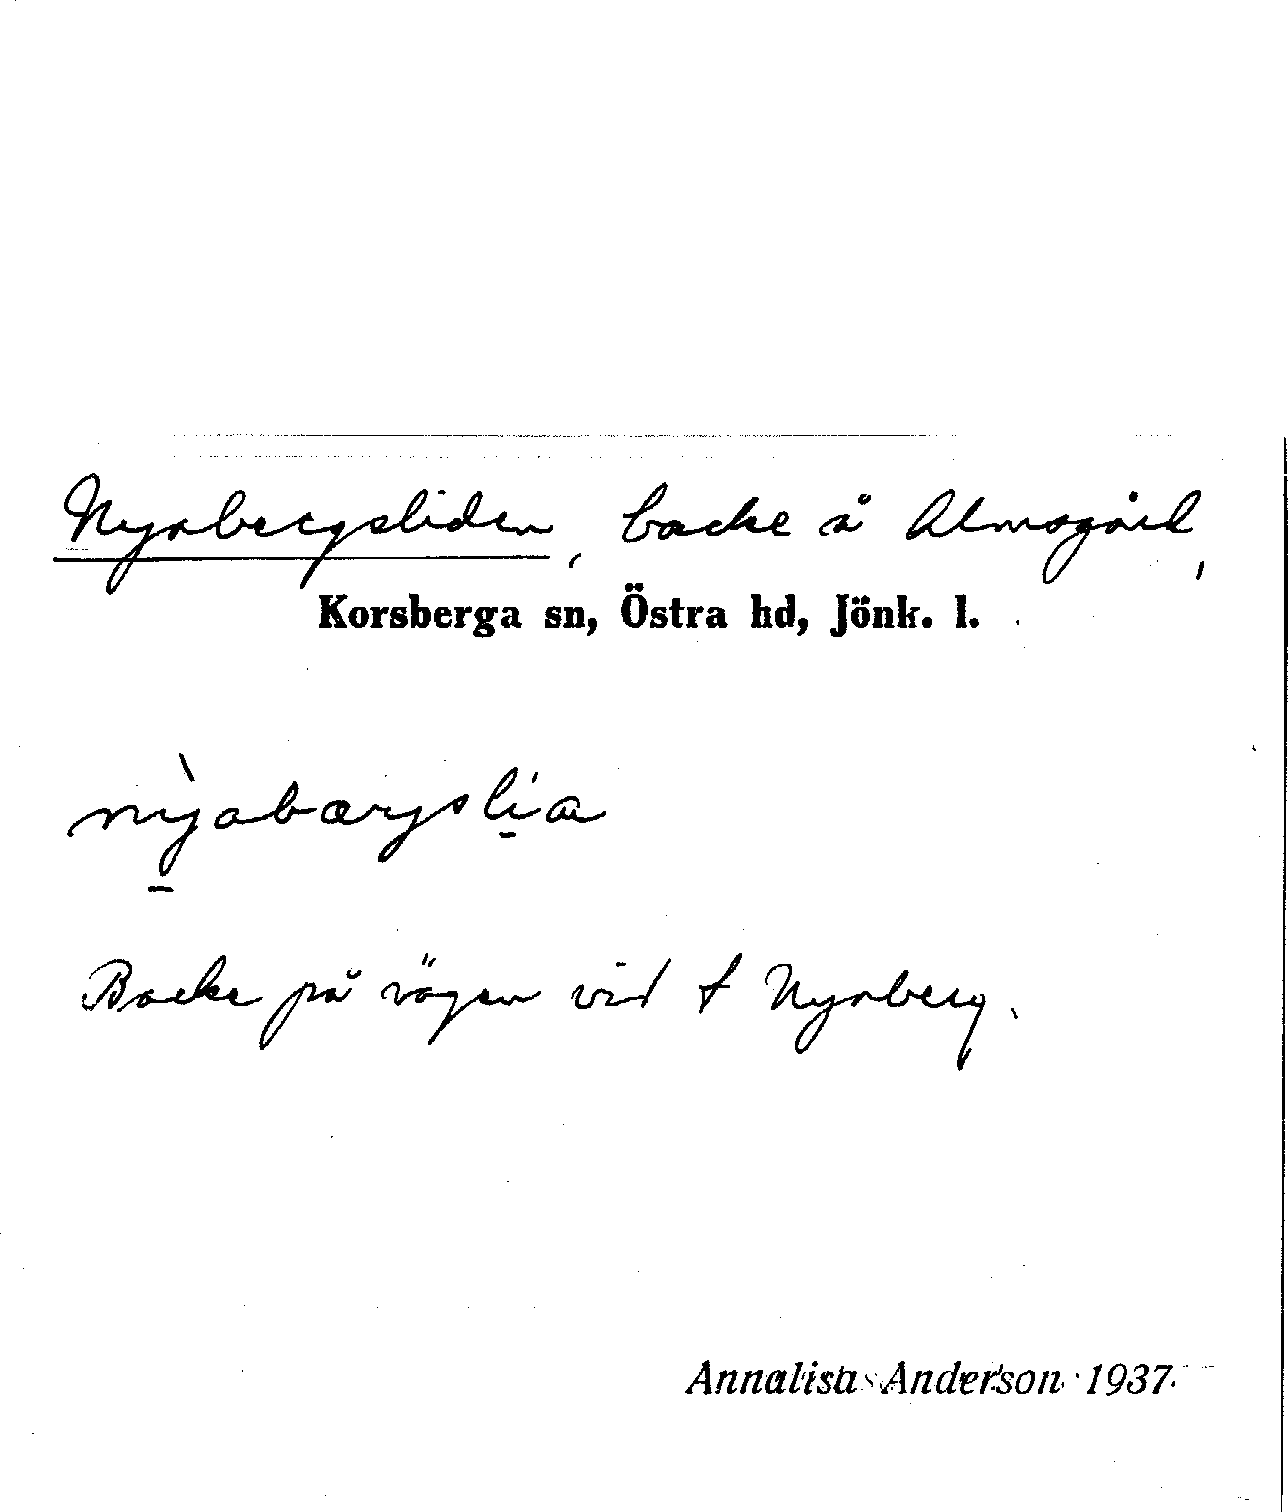 Nyabergsliden, backe å Almagård,
Korsberga sn, Östra hd, Jönk. l.
nỳabærjslia
Backe på vägen vid f Nyaberg.
Annalisa Anderson 1937.